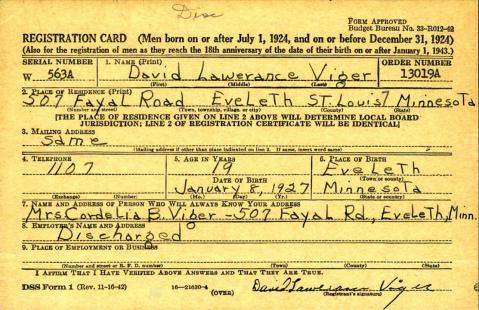 Disc
FORM APPROVED
Budget Bureau No. 33-R012-42
REGISTRATION CARD (Men born on or after July 1, 1924, and on or before December 31, 1924)
(Also for the registration of men as they reach the 18th anniversary of the date of their birth on or after January 1, 1943.)
SERIAL NUMBER 1. NAME (Print) ORDER NUMBER
W 563A David Lawerance Viger 13019A
(First) (Middle) (Last)
2. PLACE OF RESIDENCE (Print)
507 Fayal Road Eveleth St. Louis Minnesota
(Number and street) (Town, township, village, or city) (County) (State)
[THE PLACE OF RESIDENCE GIVEN ON LINE 2 ABOVE WILL DETERMINE LOCAL BOARD
JURISDICTION; LINE 2 OF REGISTRATION CERTIFICATE WILL BE IDENTICAL]
3. MAILING ADDRESS
Same
[Mailing address if other than place indicated on line 2. If same, insert word same]
4. TELEPHONE 5. AGE IN YEARS 6. PLACE OF BIRTH
1107 19 Eveleth
(Town or county)
DATE OF BIRTH
January 8, 1927 Minnesota
(Exchange) (Number) (Mo.) (Day) (Yr.) (State or country)
7. NAME AND ADDRESS OF PERSON WHO WILL ALWAYS KNOW YOUR ADDRESS
Mrs Cordelia B. Viger - 507 Fayal Rd., Eveleth, Minn.
8. EMPLOYER'S NAME AND ADDRESS
Discharged
9. PLACE OF EMPLOYMENT OR BUSINESS
(Number and street or R. F. D. number) (Town) (County) (State)
I AFFIRM THAT I HAVE VERIFIED ABOVE ANSWERS AND THAT THEY ARE TRUE.
DSS Form 1 (Rev. 11-16-42) 16—21630-4 (OVER) David Lawerance Viger
(Registrant's signature)